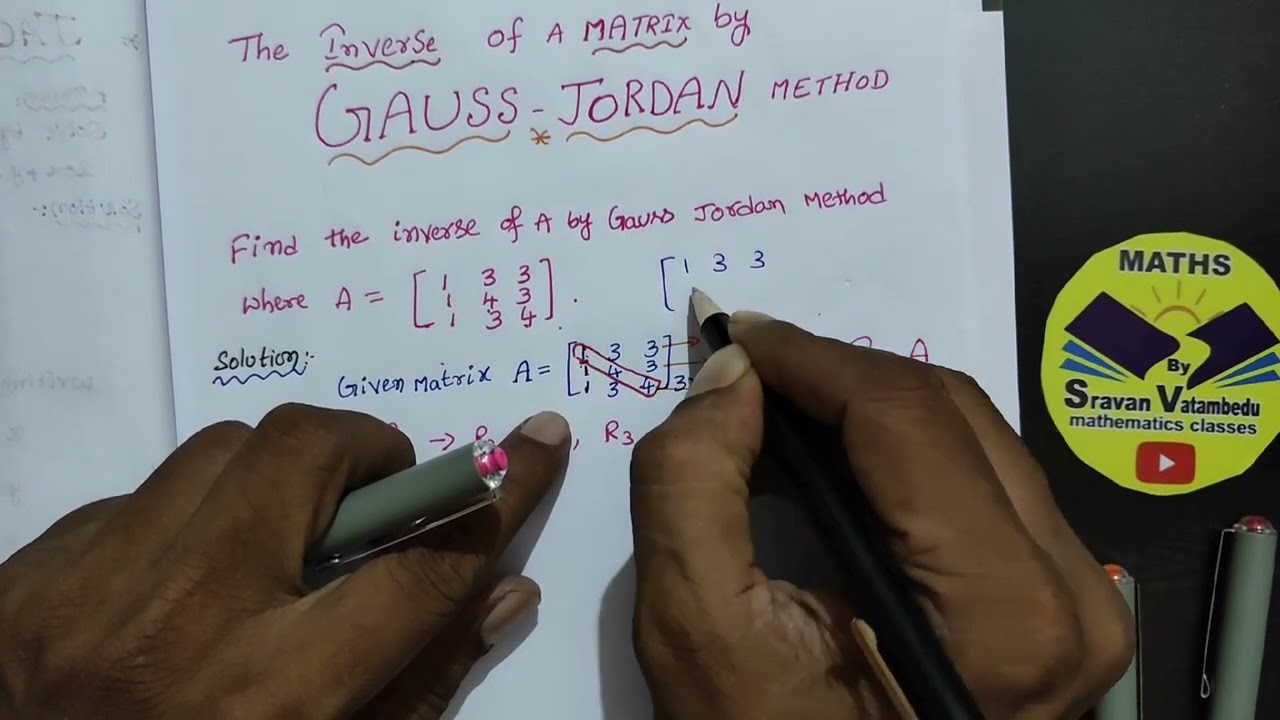 The Inverse of A MATRIX by
GAUSS - JORDAN METHOD
*
Find the inverse of A by Gauss Jordan Method
where A = [ 1 3 3
1 4 3
1 3 4 ] .
[ 1 3 3
Solution:-
Given Matrix A = [ 1 3 3 ] →
1 4 3 →
1 3 4 3
A
→ R , R3
MATHS
By
Sravan Vatambedu
mathematics classes